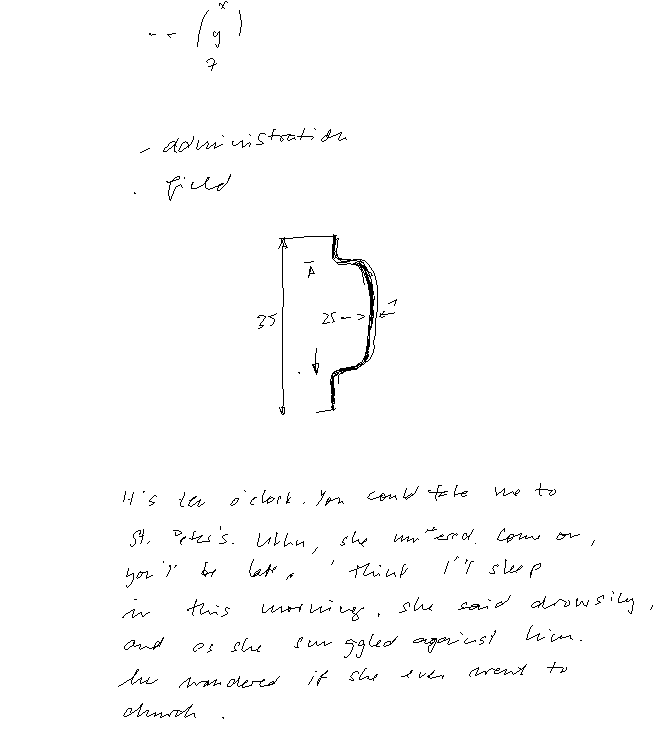 -- (x
y)
z
- administration
. field
A
35
25 -> <- 1
It's ten o'clock. You could take me to
St. Peter's. Uhhu, she muttered. Come on,
you'll be late. I think I'll sleep
in this morning, she said drowsily,
and as she snuggled against him.
he wondered if she ever went to
church.